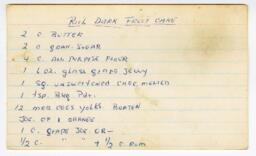 Rich Dark Fruit Cake
2 C. Butter
2 C. Gran. Sugar
4 C. All Purpose Flour
1 6 oz. glass grape jelly
1 sq. unsweetened choc. melted
1 tsp. Bkg. Pdr.
12 med eggs yolks beaten
Jce. of 1 orange
1 C. grape jce or—
1/2 C. " " + 1/2 C. rum